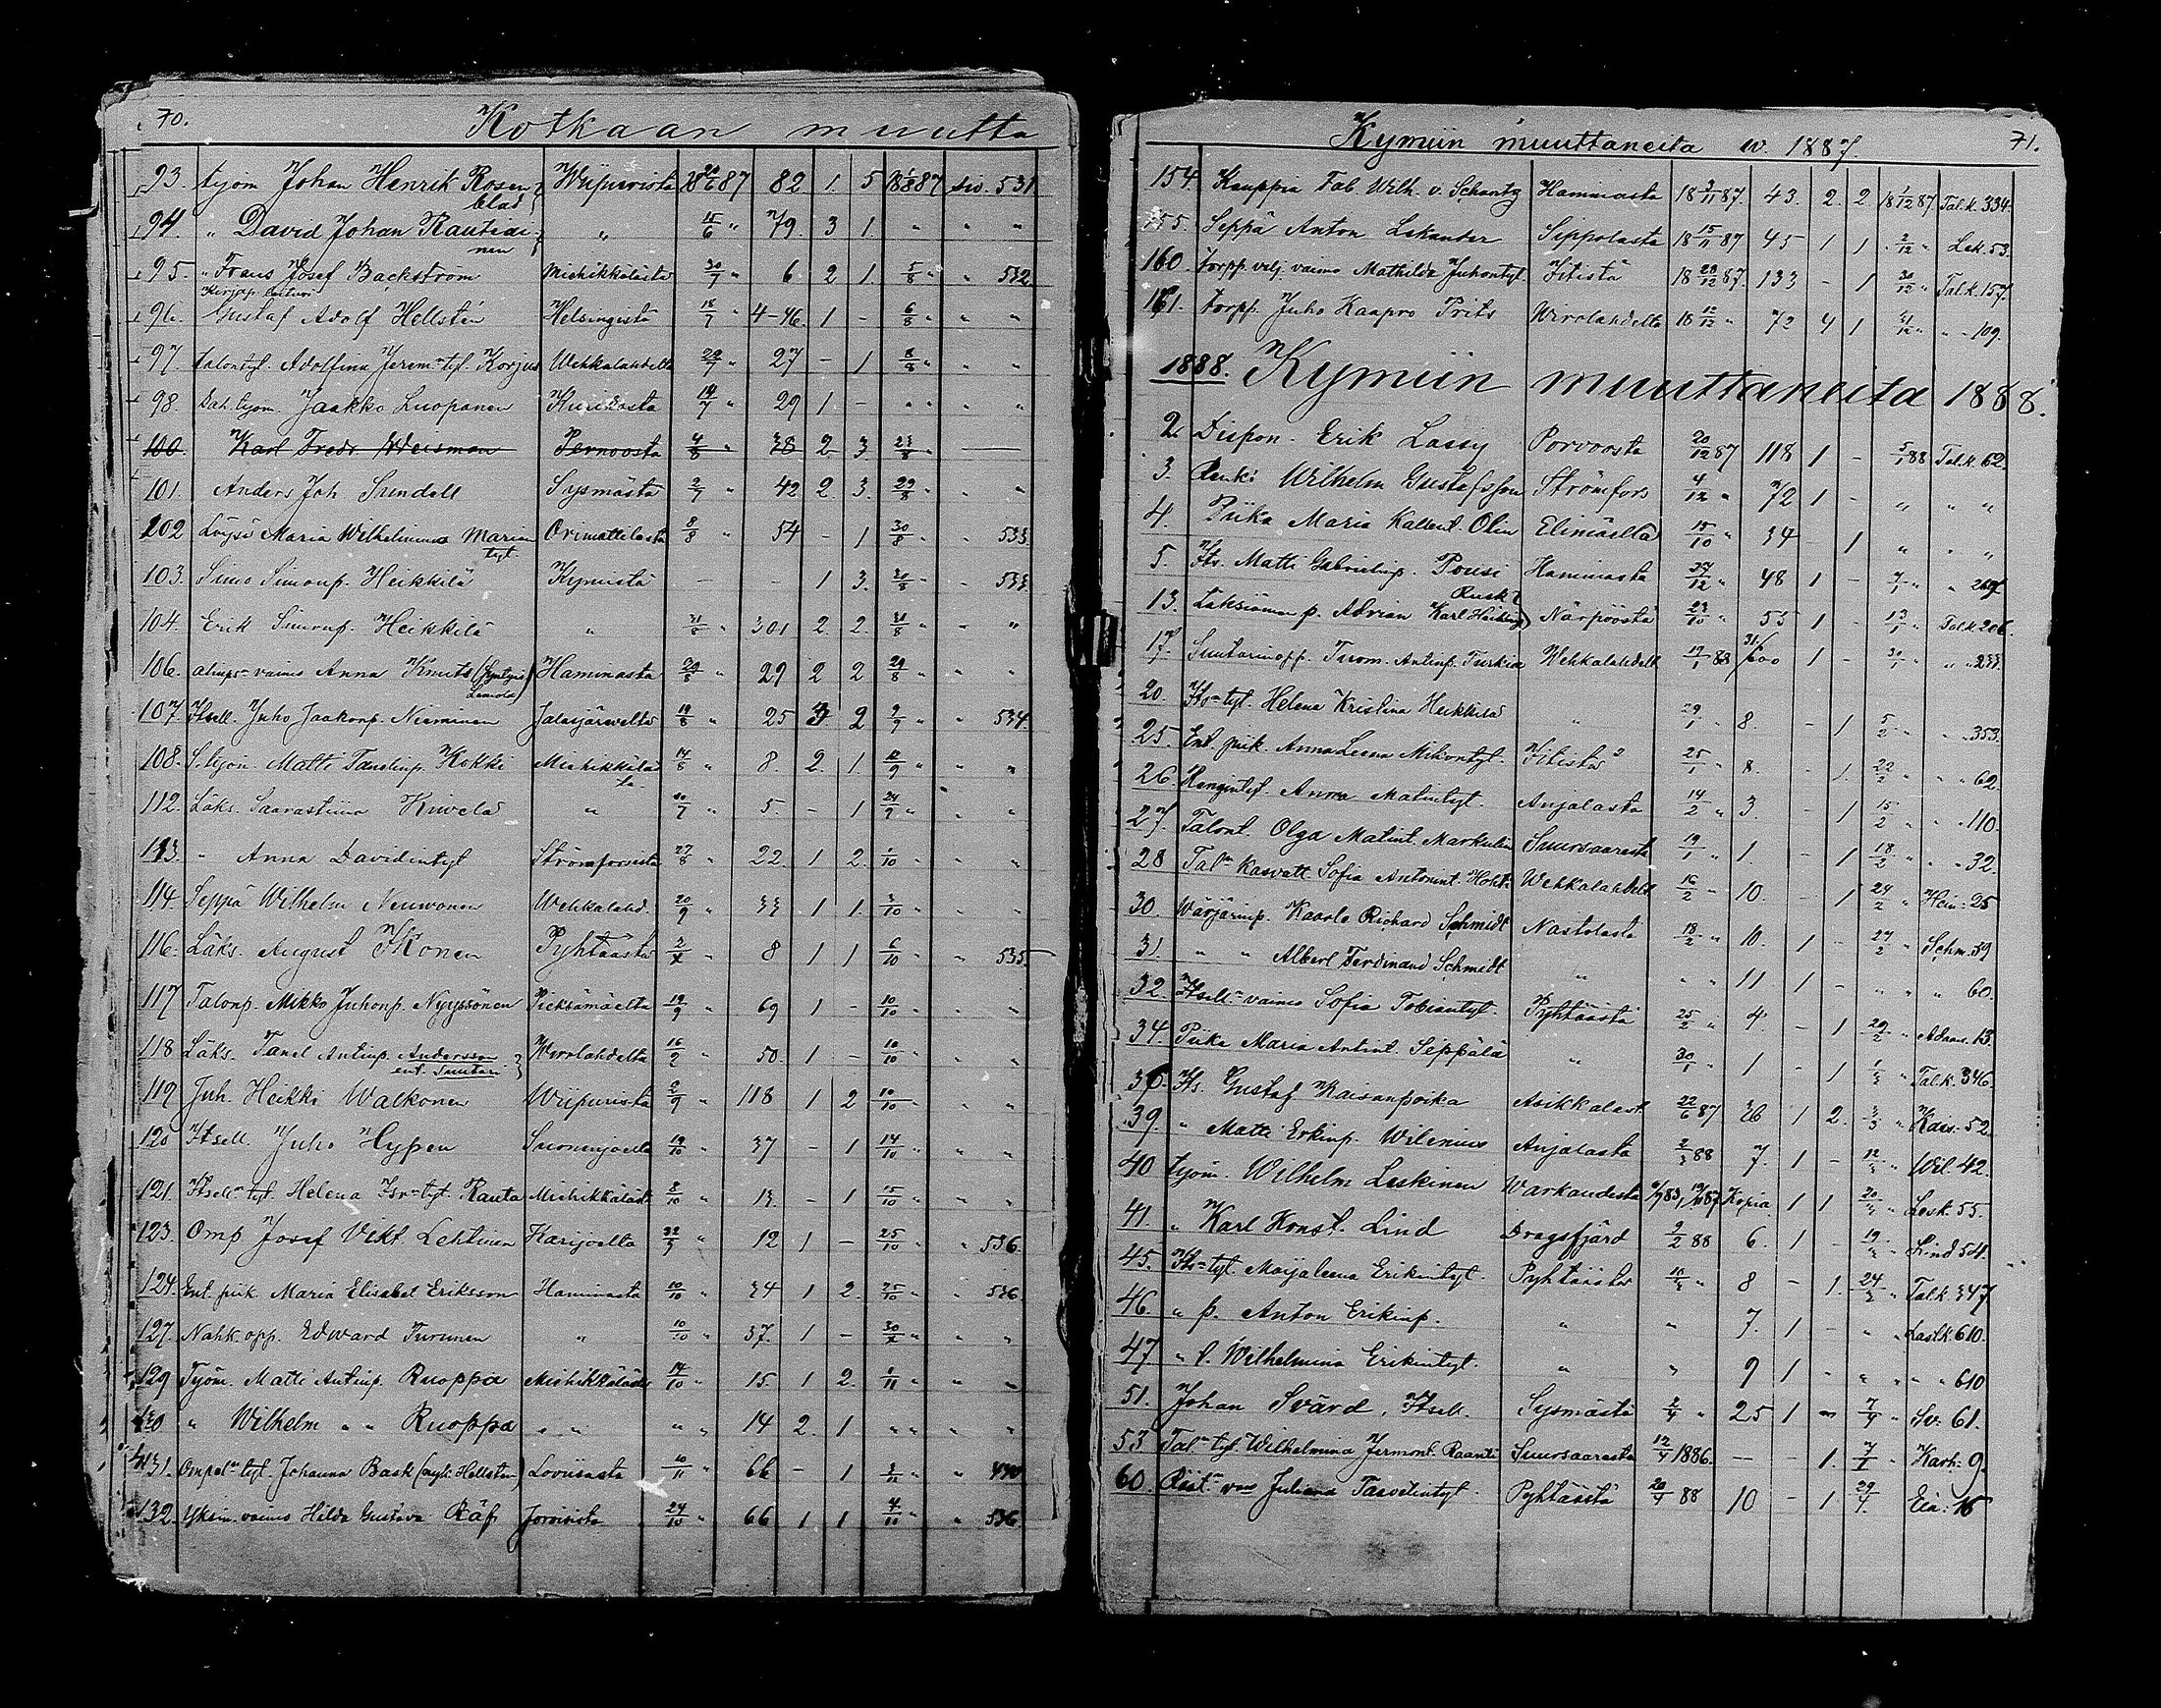 70.
Kotkaan muutta
93. työm Johan Henrik Rosenblad Wiipurista 18 20/6 87 82 1. 5 18 1/8 87 siv. 531
94. " David Johan Rautiainen " 15/6 " 79. 3 1. " " " "
95. " Frans Josef Backström Miehikkälästä 30/7 " 6 2 1. 5/8 " " 532
96. Kirjap. Gustaf Adolf Hellstén Helsingistä 18/7 " 4-46. 1 - 6/8 " " "
97. talontyt. Adolfina Jerem-tyt. Korjus Wehkalahdelta 29/7 " 27 - 1 8/8 " " "
98. työm. Jaakko Luopanen 14/7 " 29 1 - " " " "
100 Karl Fredr Weisman Pernoosta 4/8 " 38 2 3 23/8 "
101. Anders Joh Sundell Sysmästä 2/7 " 42 2. 3. 29/8 " " "
102 Löysä Maria Wilhelmina Marian tyt. Orimattilasta 8/8 " 54 - 1 30/8 " " 533.
103. Simo Simonp. Heikkilä Kymistä - - 1 3. 30/8 " " 533.
104. Erik Simonp. Heikkilä " 31/8 " 301 2. 2. 31/8 " " "
106. vaimo Anna Knuts Haminasta 29/8 " 29 2 2 29/8 " " "
107. Itsell. Juho Jaakonp. Nieminen Jalasjärweltä 19/8 " 25 3 2 9/9 " " 534.
108. S. työm. Matti Tanelinp. Kokki Miehikkälästä 14/8 " 8. 2. 1. 12/9 " " "
112. Läks. Saarastiina Kiwelä " 30/7 " 5. - 1 24/9 " " "
113. " Anna Davidintyt Strömforsista 27/8 " 22. 1 2. 1/10 " " "
114. Seppä Wilhelm Neuwonen Wehkalahd. 20/9 " 33 1 1. 3/10 " " "
116. Läks. August Ikonen Pyhtäästä " 8 1 1 6/10 " " 535.
117 Talonp. Mikko Juhonp. Nyyssönen Pieksämäelta 19/9 " 69 1 - 10/10 " " "
118 Läks. Tanel Antinp. Andersson ent. Suutari Wirolahdelta 16/2 " 50. 1 - 10/10 " " "
119 Juh. Heikki Walkonen Wiipurista 2/9 " 118 1 2 10/10 " " "
120 Itsell. Juho Hypen Suonenjoelta 19/10 " 37 - 1 14/10 " " "
121. Itsell-tyt. Helena Rauta Miehikkälästä 8/10 " 13. - 1 15/10 " " "
123. Omp Josef Vikt. Lehtinen Karijoelta " 12 1 - 25/10 " " 536.
124. Ent. piik. Maria Elisabet Eriksson Haminasta 10/10 " 34 1 2. 25/10 " " 536.
127. Nahk. opp. Edward Turunen " 10/10 " 37. 1 - " " "
129 Työm. Matti Antinp. Ruoppa Miehikkälästä 14/10 " 15. 1 2. 1/11 " " "
130 " Wilhelm " " Ruoppa " " " " 14 2. 1 " " " "
131. Ompel-tyt. Johanna Bask (myh. Hellsten) Loviisasta 10/11 " 66 - 1 " "
132. vaimo Hilda Gustava Räf Joroisista 24/10 " 66 1 1 4/11 " " 536
71.
Kymiin muuttaneita w. 1887.
154. Kauppia Fab. Wilh. v. Schantz Haminasta 18 3/11 87. 43. 2. 2. 18 1/12 87. Tal.k. 334.
155. Seppä Anton Lekander Sippolasta 18 15/11 87 45 1 1 2/12 " Lek. 53.
160. torpp. velj. vaimo Mathilda Juhontyt. Iitistä 18 28/12 87. 133 - 1 30/12 " Tal.k. 157.
161. torpp. Juho Kaapro Prits Wirolahdelta 18 12/12 " 72 4 1 31/12 " " 109.
1888. Kymiin muuttaneita 1888.
2. Dispon. Erik Lassy Porvoosta 20/12 87 118 1 - 5/1 88 Tal.k. 62.
3. Renki Wilhelm Gustafsson Strömfors 4/12 " 72 1 - " " "
4. Piika Maria Kallent. Olin Elimäeltä 15/10 " 34 - 1 " " "
5. Its. Matti Gabrielinp. Pousi Haminasta 27/12 " 48 1 - 7/1 " "
13. Läksiäimen p. Adrian Karl Närpöösta 23/10 " 55 1 - 13/1 " Tal.k. 206.
17. Suutarinopp. Tuom. Antinp. Turkia Wehkalahdelt 19/1 88 1 - 30/1 " " 233.
20. Its-tyt. Helena Kristina Heikkilä " 29/1 " 8. - 1 5/2 " " 353.
25. Ent. piik. Anna Leena Mikontyt. Iitistä 25/1 " 8. - 1. 22/2 " " 62.
26. Rengintyt. Anna Matintyt. Anjalasta 14/2 " 3. - 1 15/2 " " 110.
27. Talont. Olga Matint. Markulin Suursaaresta 19/1 " 1. - 1 18/2 " " 32.
28 Tal- kasvatt. Sofia Antonint. Wehkalahdelt 16/2 " 10. - 1 24/2 " 25
30. Wärjärinp. Kaarlo Richard Schmidt Nastolasta 18/2 " 10. 1 - 27/2 " Schm. 59
31. " " Albert Ferdinand Schmidt " " " 11 1 - " " " 60.
32. Itsell-vaimo Sofia Tobiantyt. Pyhtäästä 25/2 " 4 - 1 29/2 " Adam. 13.
34. Piika Maria Antint. Seppälä " 30/1 " 1 - 1 1/3 " Tal.k. 346.
36. Its. Gustaf Kaisanpoika Asikkalast. 22/6 87 26 1 2. 3/3 " Kais. 52.
39. " Matti Erkinp. Wilenius Anjalasta 2/3 88 7. 1 - 12/3 " Wil. 42.
40 työm. Wilhelm Leskinen Warkaudesta Kopia 1 1 20/3 " Lesk. 55.
41. " Karl Konst. Lind Dragsfjärd 9/2 88 6. 1 - 19/3 " Lind 54.
45. Its-tyt. Maijaleena Erikintyt. Pyhtäästä 10/3 " 8 - 1. 24/3 " Tal.k. 347
46. " p. Anton Erikinp. " " 7. 1 - " " Lastk. 610.
47 " t. Wilhelmina Erikintyt. " " 9 1 " " " " 610
51. Johan Svärd, Itsell. Sysmästä 2/4 " 25 1 - 7/4 " Sv. 61.
53 Tal- tyt. Wilhelmina Jeremont. Raanti Suursaaresta 12/4 1886. - - 1. " Karh. 9.
60. Juliana Taavetintyt. Pyhtäästä 20/4 88 10 - 1 29/4. Eia.